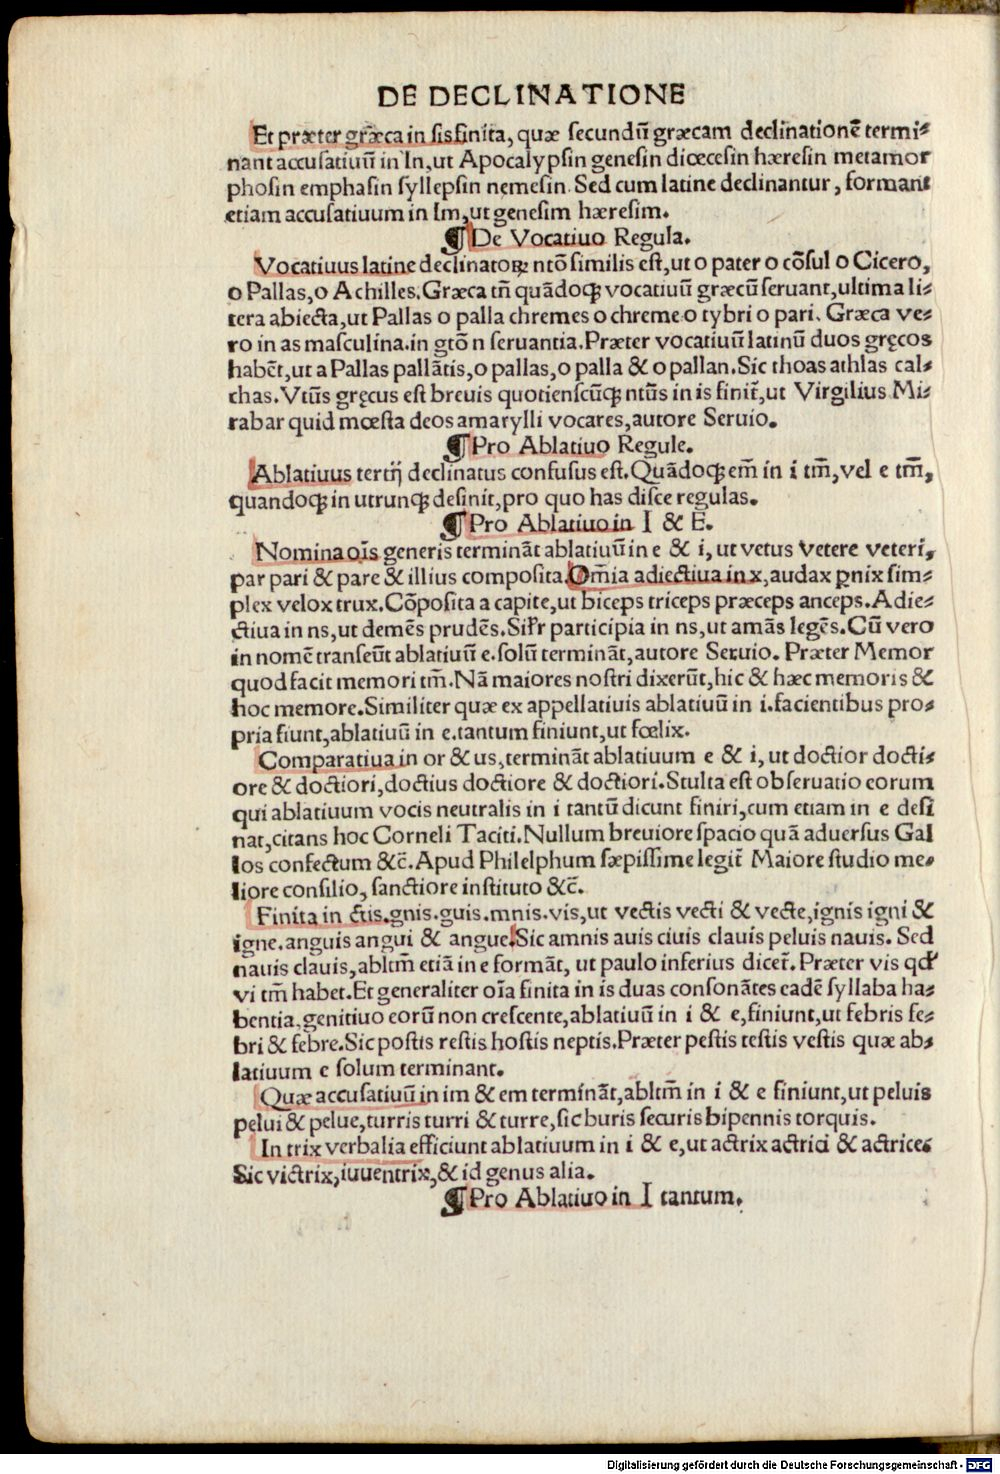 DE DECLINATIONE
Et præter græca in sis finita, quæ secundũ græcam declinationẽ termi⸗
nant accusatiuũ in In, ut Apocalypsin genesin diœcesin hæresin metamor
phosin emphasin syllepsin nemesin. Sed cum latine declinantur, formant
etiam accusatiuum in Im, ut genesim hæresim.
¶ De Vocatiuo Regula.
Vocatiuus latine declinatoꝝ ntõ similis est, ut o pater o cõsul o Cicero,
o Pallas, o Achilles. Græca tñ quãdoqꝫ vocatiuũ græcũ seruant, ultima li⸗
tera abiecta, ut Pallas o palla chremes o chreme o tybri o pari. Græca ve⸗
ro in as masculina. in gtõ n seruantia. Præter vocatiuũ latinũ duos gręcos
habẽt, ut a Pallas pallãtis, o pallas, o palla & o pallan. Sic thoas athlas cal⸗
chas. Vtũs gręcus est breuis quotienscũqꝫ ntũs in is finit̃, ut Virgilius Mi⸗
rabar quid mœsta deos amarylli vocares, autore Seruio.
¶ Pro Ablatiuo Regule.
Ablatiuus tertij declinatus confusus est. Quãdoqꝫ em̃ in i tm̃, vel e tm̃,
quandoqꝫ in utrunqꝫ desinit, pro quo has disce regulas.
¶ Pro Ablatiuo in I & E.
Nomina oĩs generis terminãt ablatiuũ in e & i, ut vetus vetere veteri,
par pari & pare & illius composita. Om̃ia adiectiua in x, audax ꝑnix sim⸗
plex velox trux. Cõposita a capite, ut biceps triceps præceps anceps. Adie⸗
ctiua in ns, ut demẽs prudẽs. Sil̃r participia in ns, ut amãs legẽs. Cũ vero
in nomẽ transeũt ablatiuũ e. solũ terminãt, autore Seruio. Præter Memor
quod facit memori tm̃. Nã maiores nostri dixerũt, hic & hæc memoris &
hoc memore. Similiter quæ ex appellatiuis ablatiuũ in i. facientibus pro⸗
pria fiunt, ablatiuũ in e. tantum finiunt, ut fœlix.
Comparatiua in or & us, terminãt ablatiuum e & i, ut doctior docti⸗
ore & doctiori, doctius doctiore & doctiori. Stulta est obseruatio eorum
qui ablatiuum vocis neutralis in i tantũ dicunt finiri, cum etiam in e desi
nat, citans hoc Corneli Taciti. Nullum breuiore spacio quã aduersus Gal
los confectum &c̃. Apud Philelphum sæpissime legit̃ Maiore studio me⸗
liore consilio, sanctiore instituto &c̃.
Finita in ctis. gnis. guis. mnis. vis, ut vectis vecti & vecte, ignis igni &
igne. anguis angui & angue. Sic amnis auis ciuis clauis peluis nauis. Sed
nauis clauis, abltm̃ etiã in e formãt, ut paulo inferius dicet̃. Præter vis qđ
vi tm̃ habet. Et generaliter oĩa finita in is duas consonãtes eadẽ syllaba ha⸗
bentia, genitiuo eorũ non crescente, ablatiuũ in i & e, finiunt, ut febris fe⸗
bri & febre. Sic postis restis hostis neptis. Præter pestis testis vestis quæ ab⸗
latiuum e solum terminant.
Quæ accusatiuũ in im & em terminãt, abltm̃ in i & e finiunt, ut peluis
pelui & pelue, turris turri & turre, sic buris securis bipennis torquis.
In trix verbalia efficiunt ablatiuum in i & e, ut actrix actrici & actrices
Sic victrix, iuuentrix, & id genus alia.
¶ Pro Ablatiuo in I tantum.
Digitalisierung gefördert durch die Deutsche Forschungsgemeinschaft - DFG